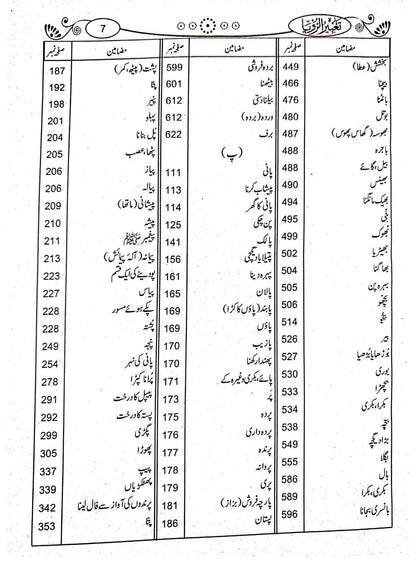 7
تعبیر الرؤیا
مضامین صفحہ نمبر
بخشش (عطا) 449
بیچنا 466
بانٹنا 476
بوتل 480
بھوسہ (گھاس پھوس) 487
باجرہ 488
بیل، گائے 488
بھینس 490
بھیک مانگنا 494
بلی 495
بھوک 499
بھیڑیا 502
بھاگنا 504
بہرہ پن 505
بچھو 506
514
بیر 526
بوڑھا یا بُڑھیا 527
بوری 530
بچھڑا 533
بکرا، بکری 534
بچہ 538
549
بگلا 555
بال 586
بکری، بکرا 589
بانسری بجانا 596
مضامین صفحہ نمبر
بردہ فروشی 599
بیٹھنا 601
بیلنا دستی 612
وردہ (بردہ) 612
برف 622
(پ)
پانی 111
پیشاب کرنا 113
پانی کا گھر 114
پن چکی 125
پالک 141
پتیلا یا دیگچی 156
پہرہ دینا 161
پالان 165
پابند (پاؤں کا کڑا) 169
پاؤں 169
پازیب 170
پھندا رکھنا 170
پائے، بکری وغیرہ کے 171
پَر 173
پردہ 175
پردہ داری 176
پرندہ 177
پروانہ 178
پری 179
پارچہ فروش (بزاز) 181
پستان 186
مضامین صفحہ نمبر
پشت (پیٹھ، کمر) 187
192
پنیر 198
پہلو 201
پُل بنانا 204
پٹھا، عصب 205
پیاز 206
پیالہ 206
پیشانی (ماتھا) 209
پیشہ 210
پیغمبر ﷺ 211
پیمانہ (آلۂ پیمائش) 213
پودینے کی ایک قسم 223
پیاس 227
پکے ہوئے مسور 228
پختہ 228
پنجہ 249
پانی کی نہر 254
پُرانا کپڑا 278
پیپل کا درخت 291
پستہ کا درخت 292
پگڑی 299
پھوڑا 305
پیپ 337
پھلکڑیاں 339
پرندوں کی آواز سے فال لینا 342
353